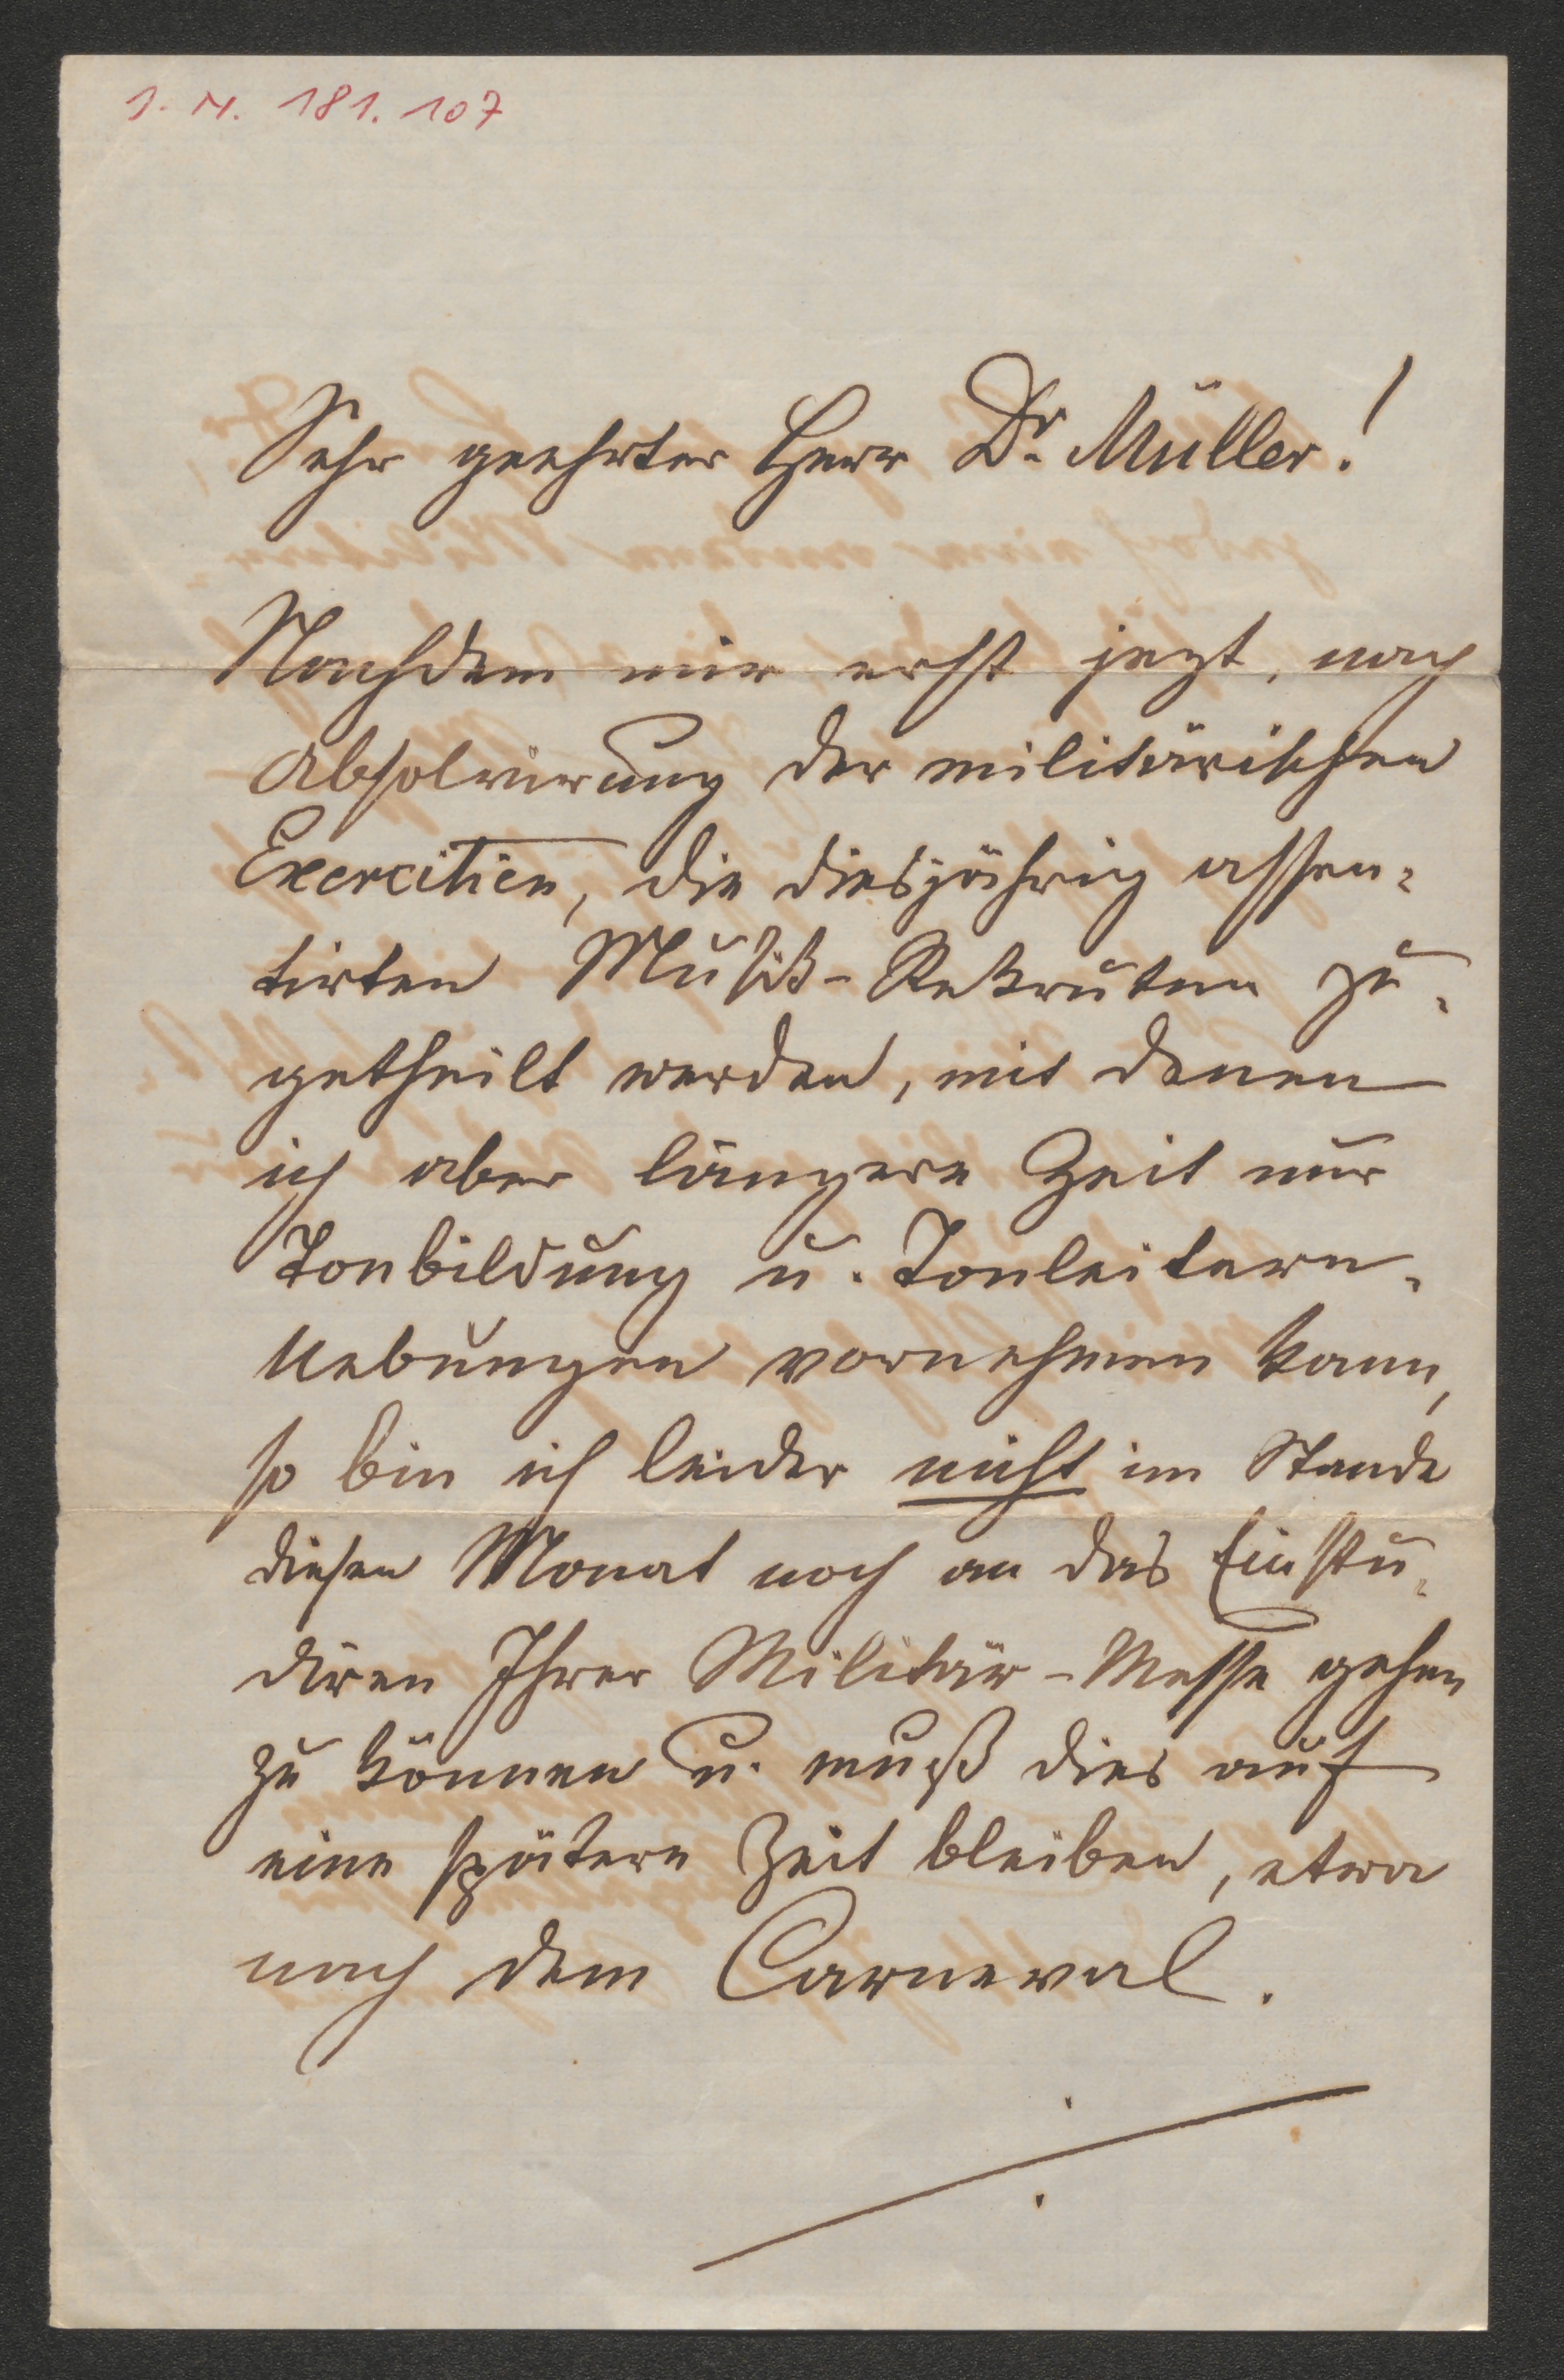 J. N. 181.107
Sehr geehrter Herr Dr. Müller!
Nachdem mir erst jezt, nach
Absolvirung der militärischen
Exercitien, die diesjährig assen-
tirten Musik-Rekruten zu-
getheilt werden, mit denen
ich aber längere Zeit nur
Tonbildung u. Tonleitern-
Uebungen vornehmen kann,
so bin ich leider nicht im Stande
diesen Monat noch an das Einstu-
diren Ihrer Militär-Messe gehen
zu können u. muß dies auf
eine spätere Zeit bleiben, etwa
nach dem Carneval.